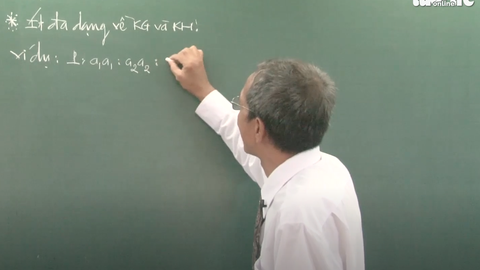 * Ít đa dạng về KG và KH!
Ví dụ: P: a₁a₁ : a₂a₂ :
online